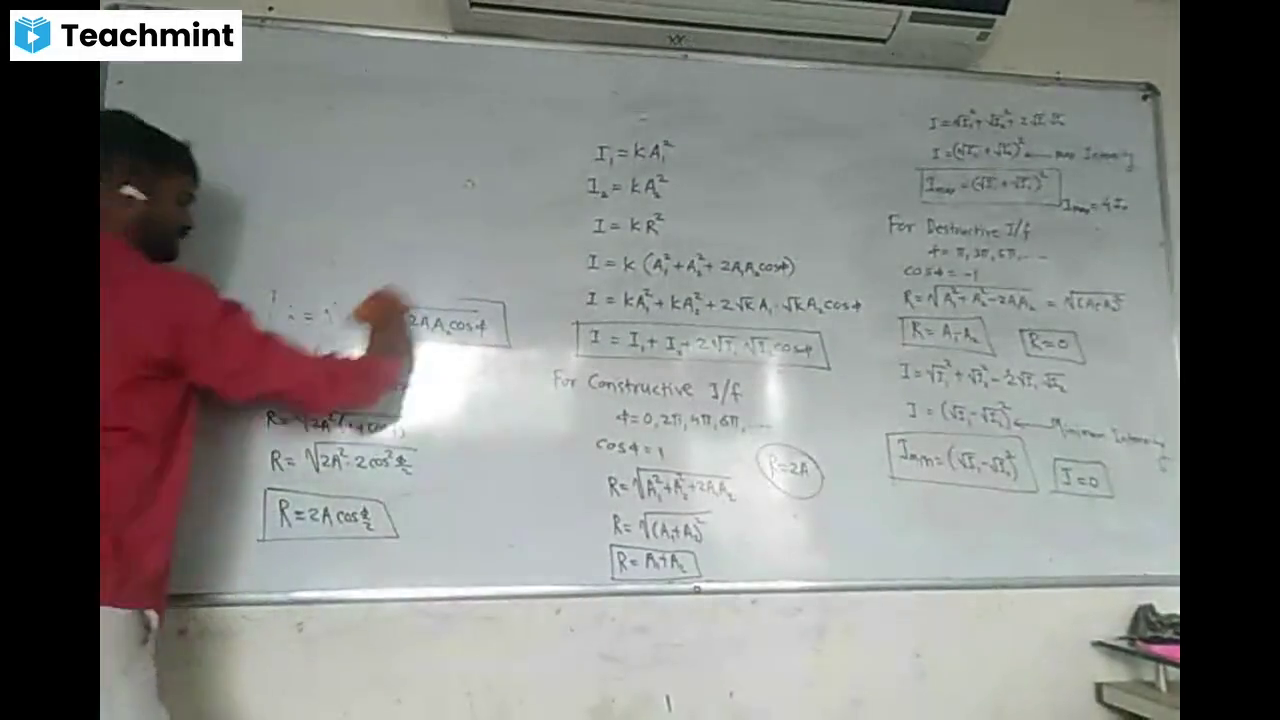 Teachmint
2A₁A₂cosφ
R = √2A²·2cos²φ/2
R = 2A cosφ/2
I₁ = kA₁²
I₂ = kA₂²
I = kR²
I = k (A₁² + A₂² + 2A₁A₂cosφ)
I = kA₁² + kA₂² + 2√k A₁ · √k A₂ cosφ
I = I₁ + I₂ + 2√I₁ √I₂ cosφ
For Constructive I/f
φ = 0, 2π, 4π, 6π, ....
cosφ = 1
R = √A₁² + A₂² + 2A₁A₂
R = 2A
R = √(A₁+A₂)²
R = A₁+A₂
I = √I₁² + √I₂² + 2√I₁ √I₂
I = (√I₁ + √I₂)² ← max Intensity
Imax = (√I₁ + √I₂)²
Imax = 4I₀
For Destructive I/f
cosφ = -1
R = √A₁² + A₂² - 2A₁A₂ = √(A₁-A₂)²
R = A₁-A₂
R = 0
I = √I₁² + √I₂² - 2√I₁ √I₂
I = (√I₁ - √I₂)² ← Minimum Intensity
Imin = (√I₁ - √I₂)²
I = 0